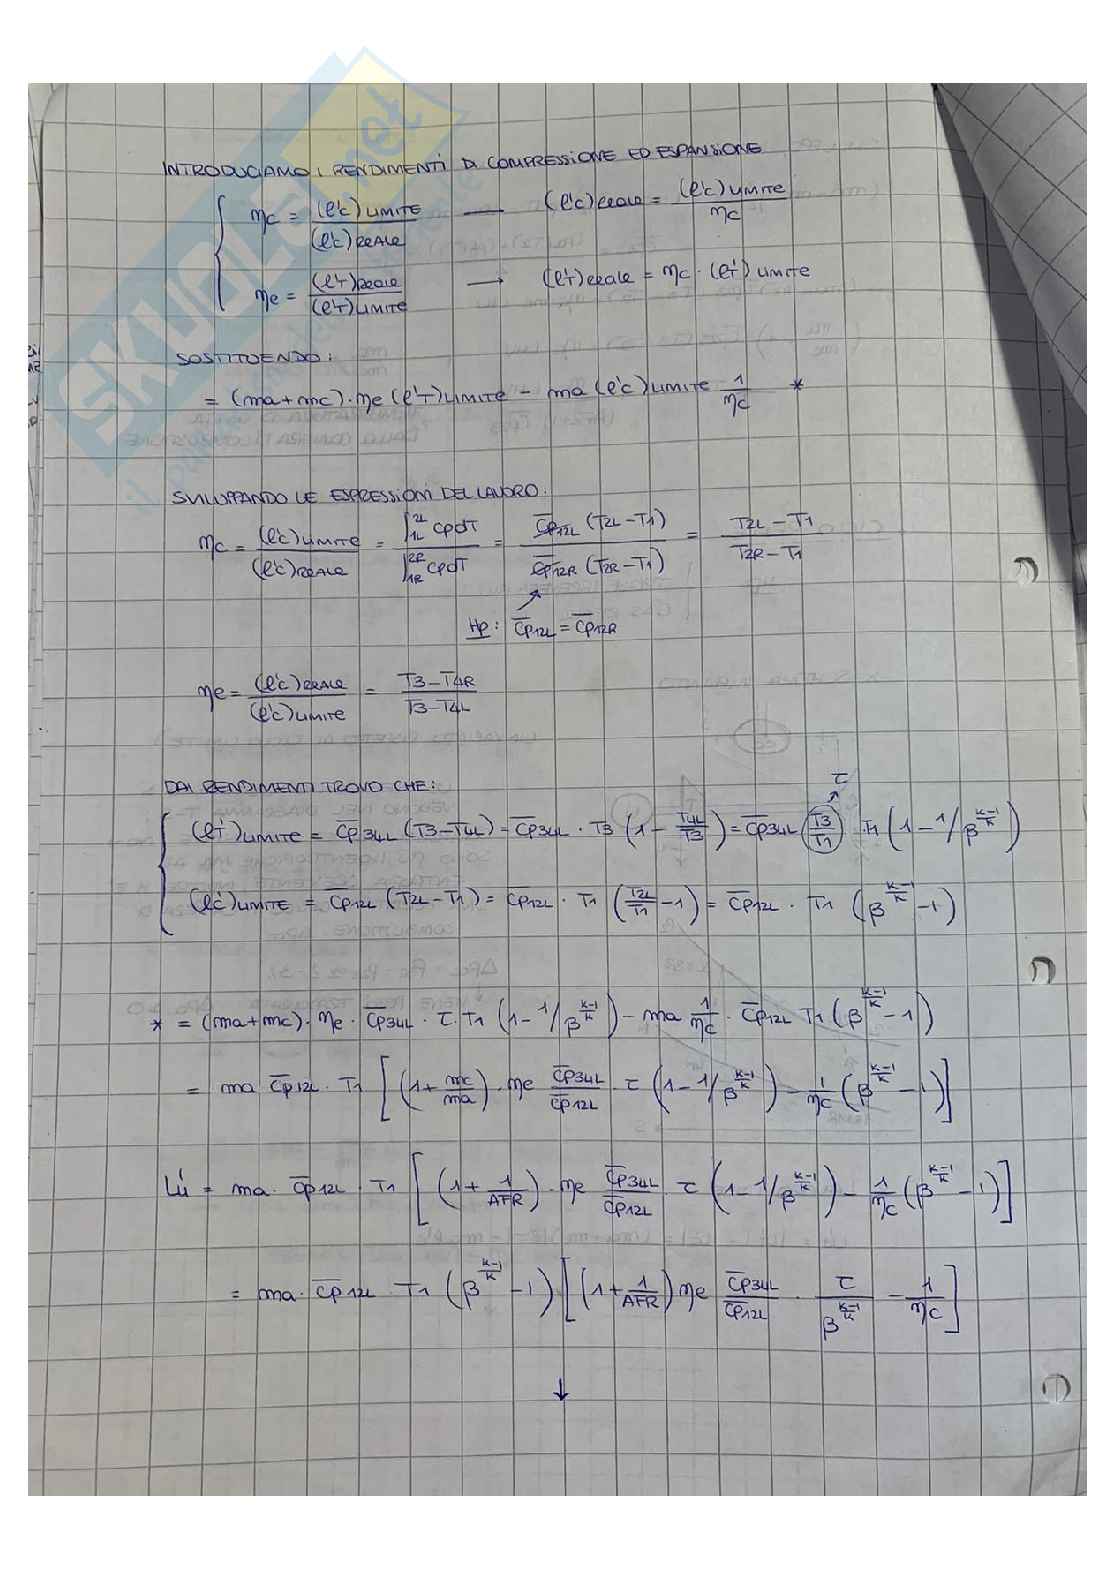 INTRODUCIAMO I RENDIMENTI DI COMPRESSIONE ED ESPANSIONE
ηc = (l'c)LIMITE / (l'c)REALE — (l'c)REALE = (l'c)LIMITE / ηc
ηe = (l'T)REALE / (l'T)LIMITE → (l'T)REALE = ηc · (l'T)LIMITE
SOSTITUENDO:
= (ma+mc) · ηe (l'T)LIMITE - ma (l'c)LIMITE 1/ηc *
SVILUPPANDO LE ESPRESSIONI DEL LAVORO.
ηc = (l'c)LIMITE / (l'c)REALE = ∫1L 2L CpdT / ∫1R 2R CpdT = C̅p12L (T2L-T1) / C̅p12R (T2R-T1) = T2L-T1 / T2R-T1
Hp: C̅p12L = C̅p12R
ηe = (l'c)REALE / (l'c)LIMITE = T3-T4R / T3-T4L
DAI RENDIMENTI TROVO CHE:
τ
(l'T)LIMITE = C̅p34L (T3-T4L) = C̅p34L · T3 (1 - T4L/T3) = C̅p34L (T3/T1) · T1 (1 - 1/β^(k-1/k))
(l'c)LIMITE = C̅p12L (T2L-T1) = C̅p12L · T1 (T2L/T1 - 1) = C̅p12L · T1 (β^(k-1/k) - 1)
* = (ma+mc) · ηe · C̅p34L · τ · T1 (1 - 1/β^(k-1/k)) - ma 1/ηc · C̅p12L T1 (β^(k-1/k) - 1)
= ma C̅p12L · T1 [(1 + mc/ma) · ηe C̅p34L/C̅p12L · τ (1 - 1/β^(k-1/k)) - 1/ηc (β^(k-1/k) - 1)]
= ma · C̅p12L · T1 [(1 + 1/AFR) · ηe C̅p34L/C̅p12L τ (1 - 1/β^(k-1/k)) - 1/ηc (β^(k-1/k) - 1)]
= ma · C̅p12L T1 (β^(k-1/k) - 1) [(1 + 1/AFR) ηe C̅p34L/C̅p12L · τ/β^(k-1/k) - 1/ηc]
↓
SKUOLA.net